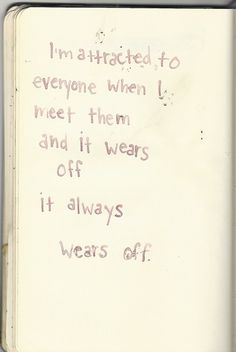 I'm attracted to
everyone when I
meet them
and it wears
off
it always
wears off.